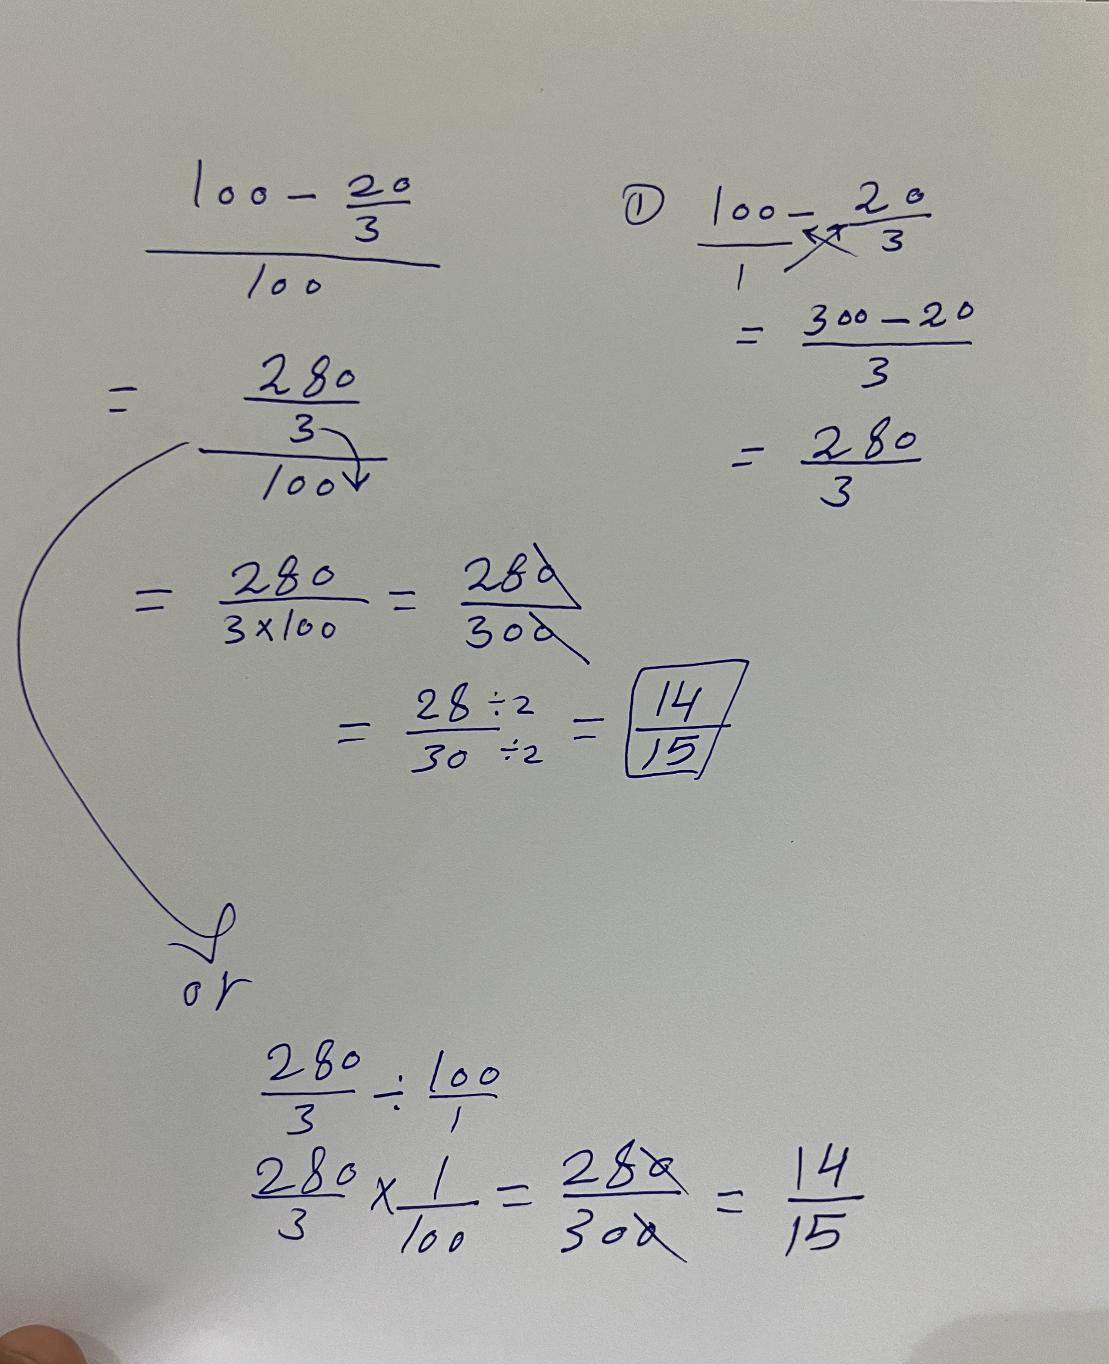 100 - 20/3
100
= 280/3
100
= 280/3×100 = 280/300
= 28÷2/30÷2 = 14/15
① 100/1 - 20/3
= 300-20/3
= 280/3
or
280/3 ÷ 100/1
280/3 × 1/100 = 280/300 = 14/15